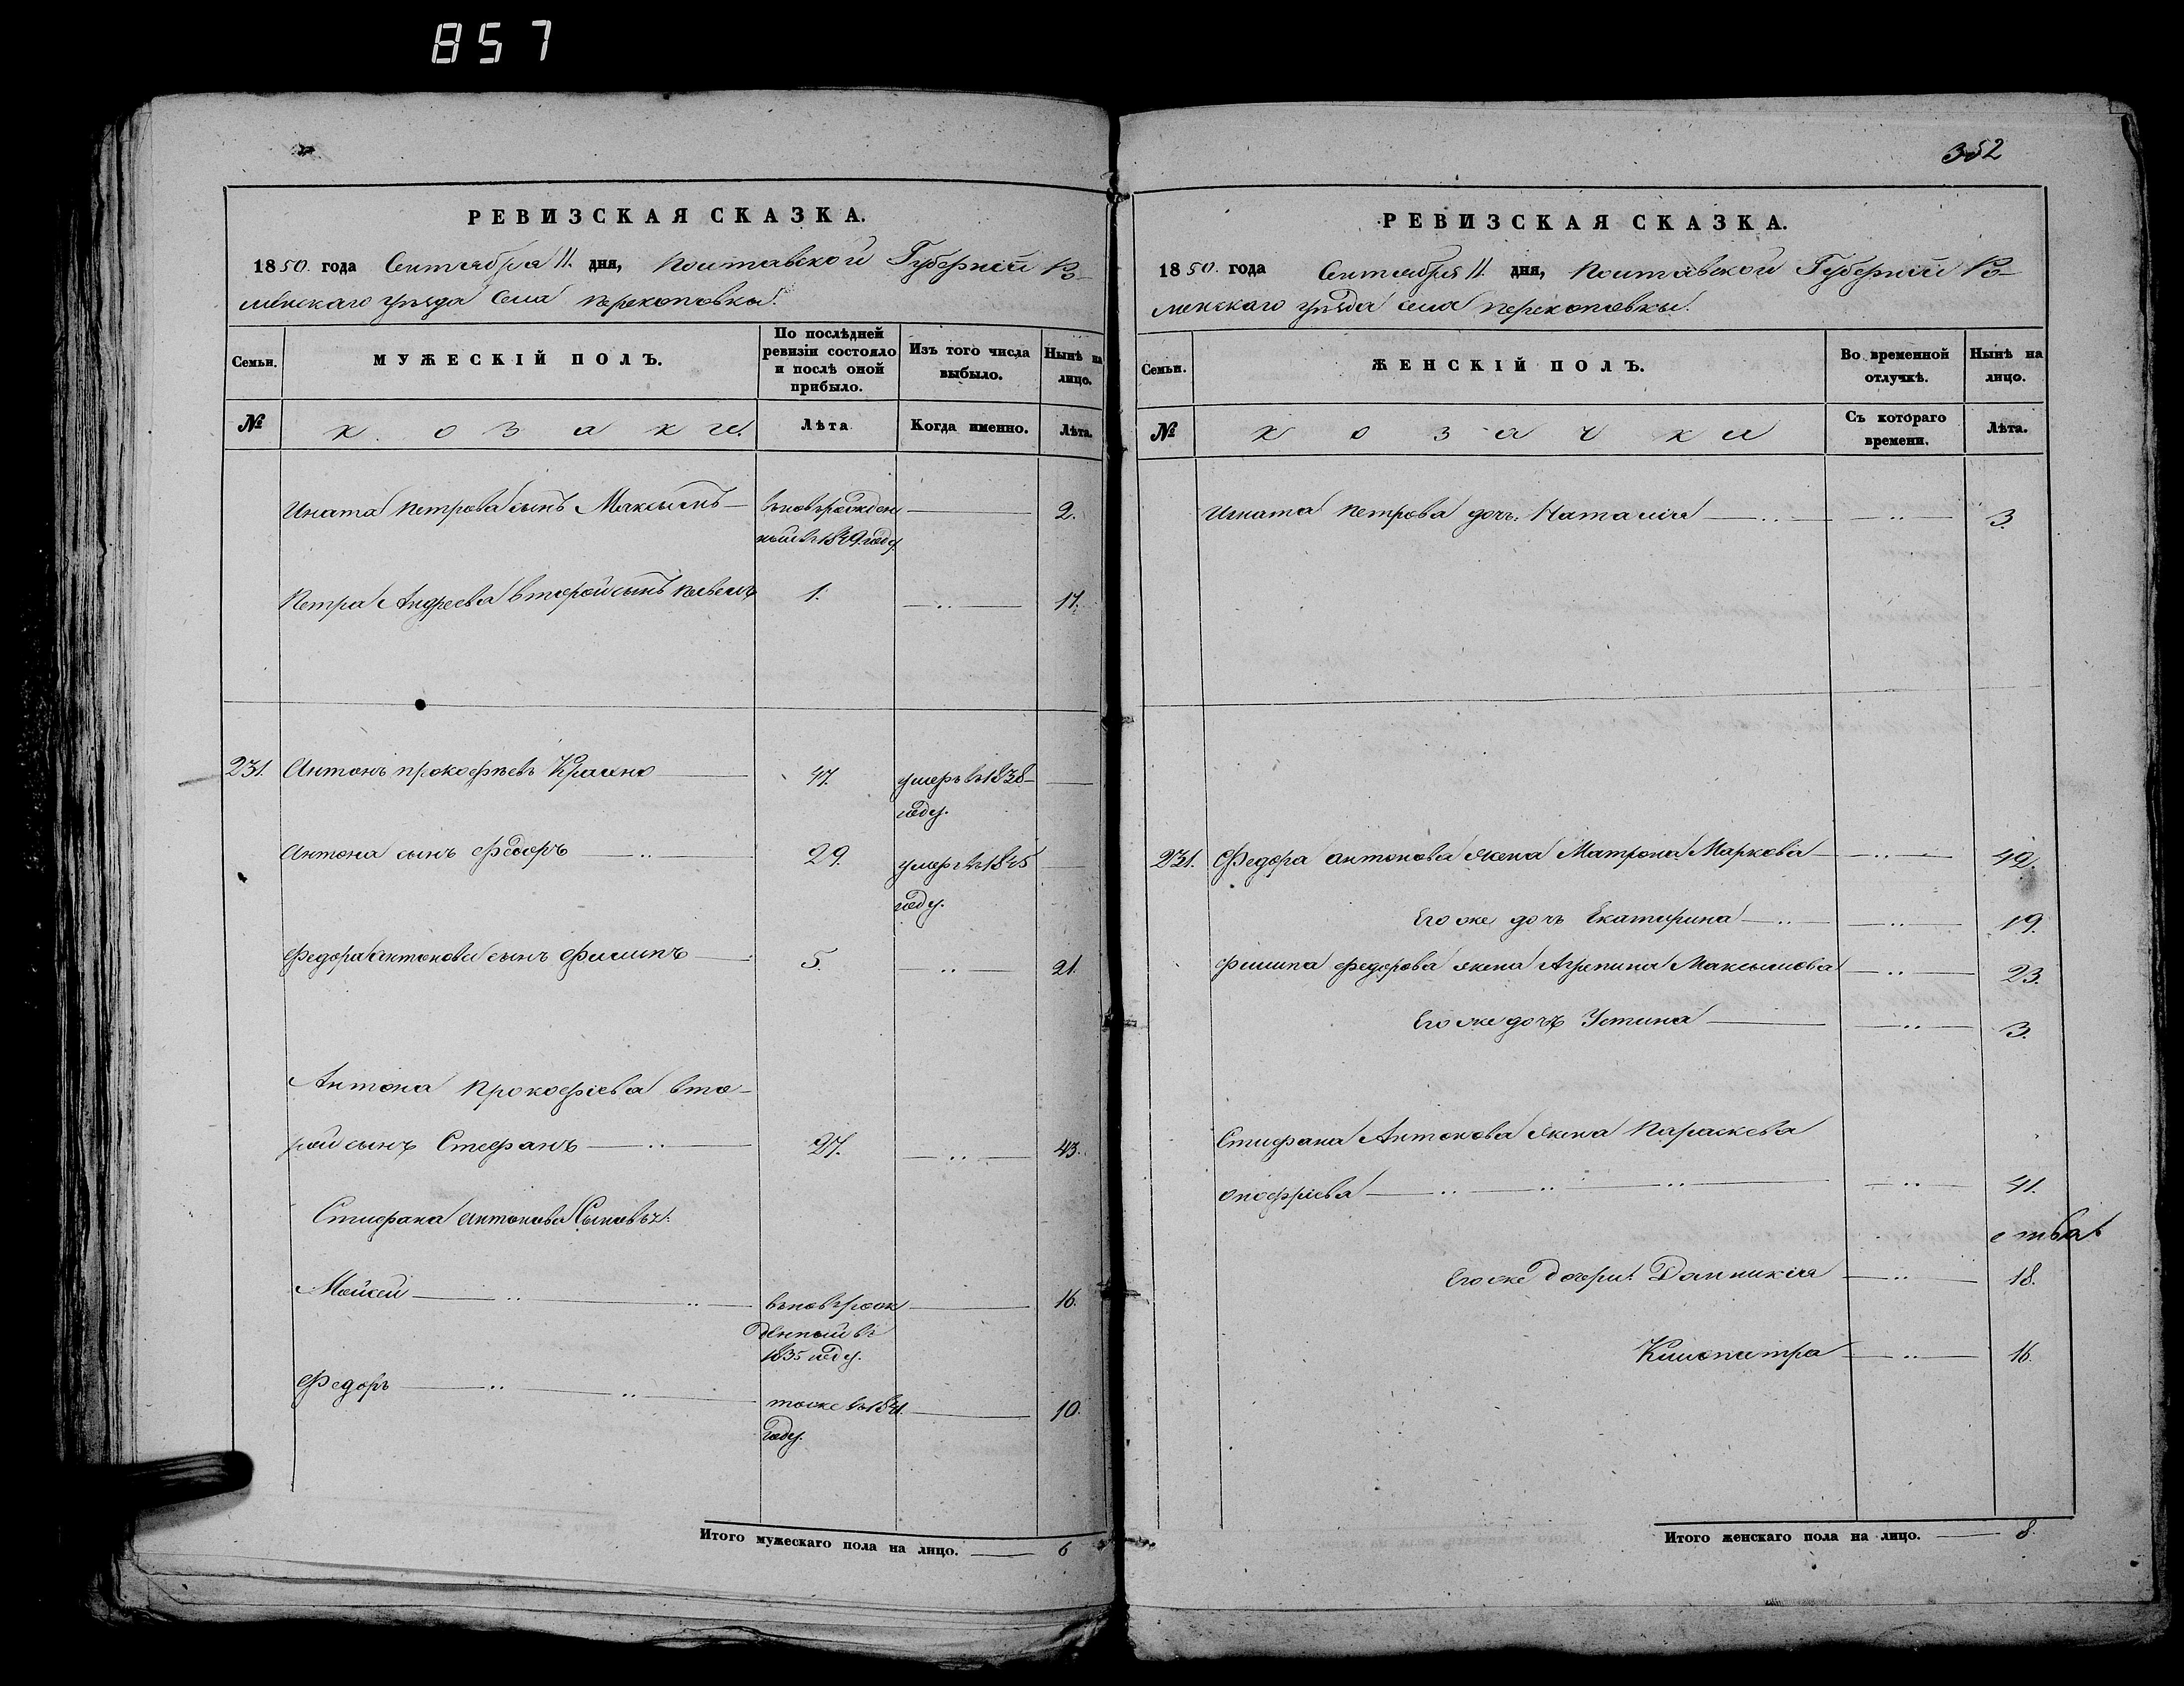 857
РЕВИЗСКАЯ СКАЗКА.
1850. года Сентября 11. дня, Полтавской Губерніи Ро-
менскаго уѣзда села Перекоповки.
Семьи.
МУЖЕСКІЙ ПОЛЪ.
По послѣдней ревизіи состояло и послѣ оной прибыло.
Изъ того числа выбыло.
Нынѣ на лицо.
№
козаки.
Лѣта
Когда именно.
Лѣта.
Игната Петрова сынъ Максымъ — вновьрожден — 2.
ный въ 1849 году.
Петра Андреева второй сынъ Павелъ 1. — 17.
231. Антонъ прокофьевъ Крахно — 47. умеръ въ 1838 —
году.
Антона сынъ Федоръ — 29. умеръ въ 1845 —
году.
Федора Антонова сынъ Филипъ — 5. — 21.
Антона Прокофіева вто-
рой сынъ Стефанъ — 27. — 43.
Стефана Антонова Сыновья:
Мойсей — вновьрож — 16.
денный въ
1835 году.
Федоръ — тоже въ 1841. — 10.
году.
Итого мужескаго пола на лицо. — 6
352
РЕВИЗСКАЯ СКАЗКА.
1850. года Сентября 11. дня, Полтавской Губерніи Ро-
менскаго уѣзда села Перекоповки.
Семьи.
ЖЕНСКІЙ ПОЛЪ.
Во временной отлучкѣ.
Нынѣ на лицо.
№
козачки
Съ котораго времени.
Лѣта.
Игната Петрова дочь Наталія — 3.
231. Федора антонова жена Матрона Маркова — 42.
Его же дочь Екатерина — 19.
Филипа Федорова жена Агрепина Максымова — 23.
Его же дочь Устина — 3.
Стефана Антонова жена Параскева
Онофріева — 41.
Его же дочери: Домникія — 18.
Клиопатра — 16.
Итого женскаго пола на лицо. — 8.